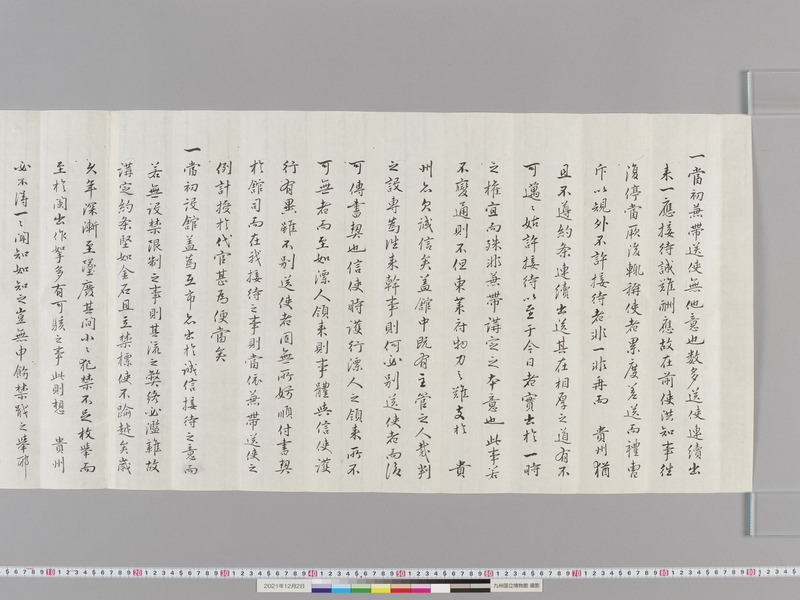 一當初兼帶送使無他意也数多送使連續出
来一應接待誠難酬應故在前使洪知事徃
復停當厥後輒稱使者累度差送而禮曹
斥以規外不許接待者非一非再而 貴州猶
且不遵約条連續出送其在相厚之道有不
可邁邁姑許接待以至于今日者實出於一時
之權宜而殊非兼帶講定之本意也此事若
不變通則不但東莱府物力之難支於 貴
州亦欠誠信矣盖館中既有主管之人裁判
之設專為徃来幹事則何必別送使者而後
可傳書契也信使時護行漂人之領来所不
可無者而至如漂人領来則事體與信使護
行有異雖不別送使者固無所妨順付書契
於館司而在我接待之事則當依兼帶送使之
例計授於代官甚為便當矣
一當初設館盖為互市亦出於誠信接待之意而
若無設禁限制之事則其流之弊終必濫雜故
講定約条堅如金石且立禁標使不踰越矣歲
久年深漸至墜廢其間小小犯禁不足枚舉而
至於闌出作拏多有可駭之事此則想 貴州
必不得一一聞知如知之豈無申飭禁戢之舉耶
2021年12月2日
九州国立博物館 撮影